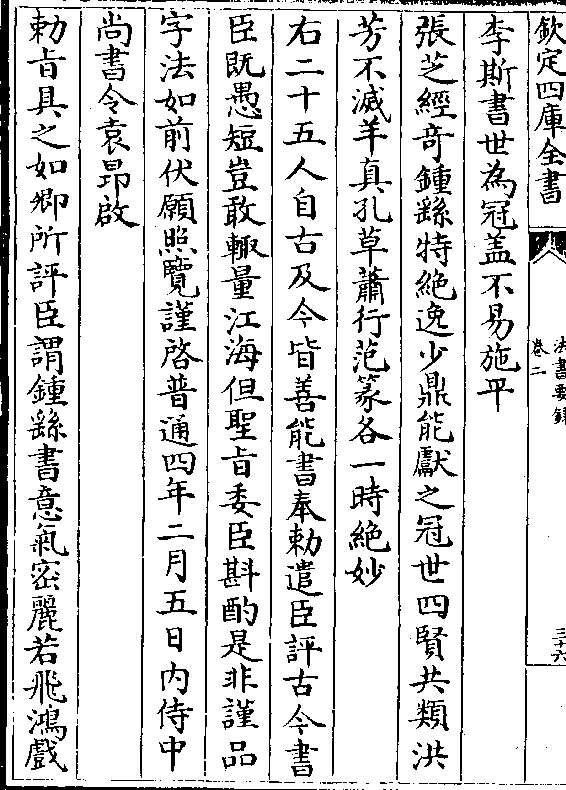 欽定四庫全書
法書要錄
卷二
三十六
李斯書世為冠盖不易施平
張芝經竒鍾繇特絶逸少鼎能獻之冠世四賢共類洪
芳不滅羊真孔草蕭行范篆各一時絶妙
右二十五人自古及今皆善能書奉勅遣臣評古今書
臣既愚短豈敢輙量江海但聖㫖委臣斟酌是非謹品
字法如前伏願照覽謹啓普通四年二月五日內侍中
尚書令袁昂啟
勅㫖具之如卿所評臣謂鍾繇書意氣宻麗若飛鴻戲